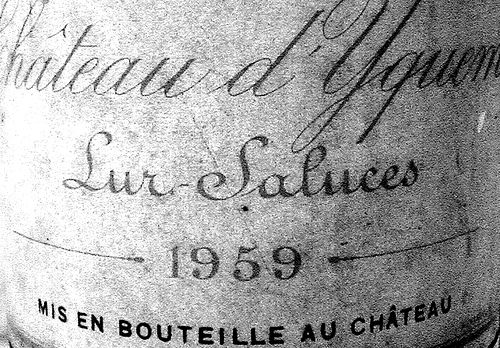 Château d'Yquem
Lur-Saluces
1959
MIS EN BOUTEILLE AU CHÂTEAU